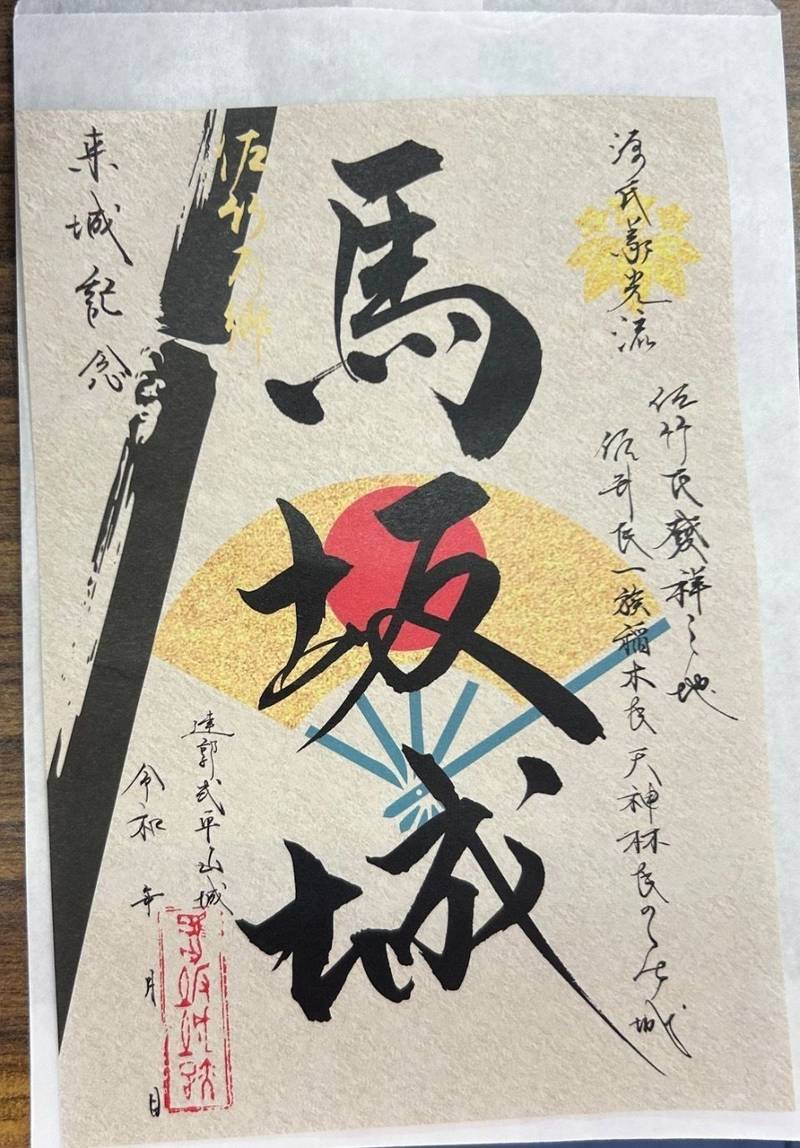 源氏義光流
佐竹氏發祥之地
佐竹氏一族稲木氏天神林氏の居城
馬坂城
連郭式平山城
佐竹乃郷
令和 年 月 日
来城記念
馬坂城跡